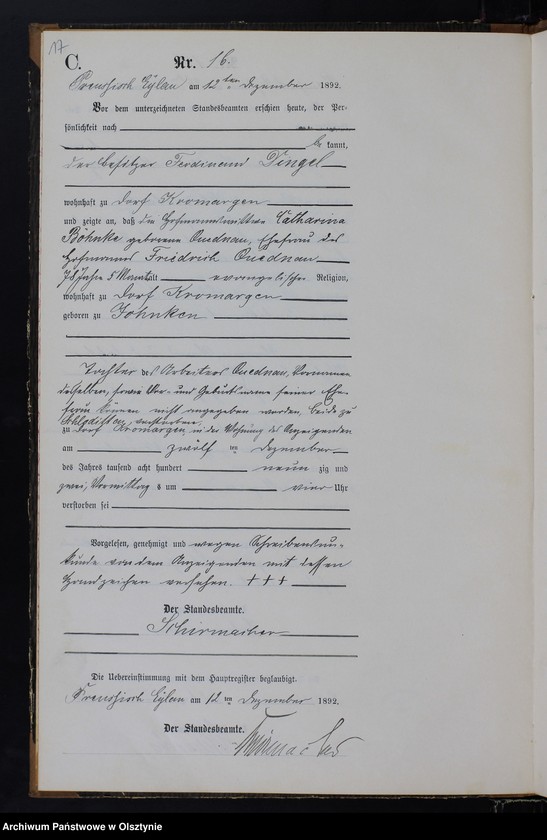 17
C. Nr. 16.
Preussisch Eylau am 12ten Dezember 1892.
Vor dem unterzeichneten Standesbeamten erschien heute, der Per-
sönlichkeit nach
be kannt,
der Besitzer Ferdinand Dingel
wohnhaft zu Dorf Kromargen
und zeigte an, daß die Catharina
Böhnke geborene Quednau, Ehefrau des
Friedrich Quednau
78 Jahre 5 Monat alt evangelischer Religion,
wohnhaft zu Dorf Kromargen
geboren zu Johnken
Tochter des Arbeiters Quednau, Vornamen
desselben, sowie Vor- und Geburtsname seiner Ehe-
frau können nicht angegeben werden, beide zu
verstorben,
zu Dorf Kromargen, in der Wohnung des Anzeigenden
am zwölf ten Dezember
des Jahres tausend acht hundert neun zig und
zwei, Vormittags um vier Uhr
verstorben sei
Vorgelesen, genehmigt und wegen Schreibensun-
kunde von dem Anzeigenden mit dessen
Handzeichen versehen. + + +
Der Standesbeamte.
Schirmacher
Die Uebereinstimmung mit dem Hauptregister beglaubigt.
Preussisch Eylau am 12 ten Dezember 1892.
Der Standesbeamte.
Schirmacher
Archiwum Państwowe w Olsztynie